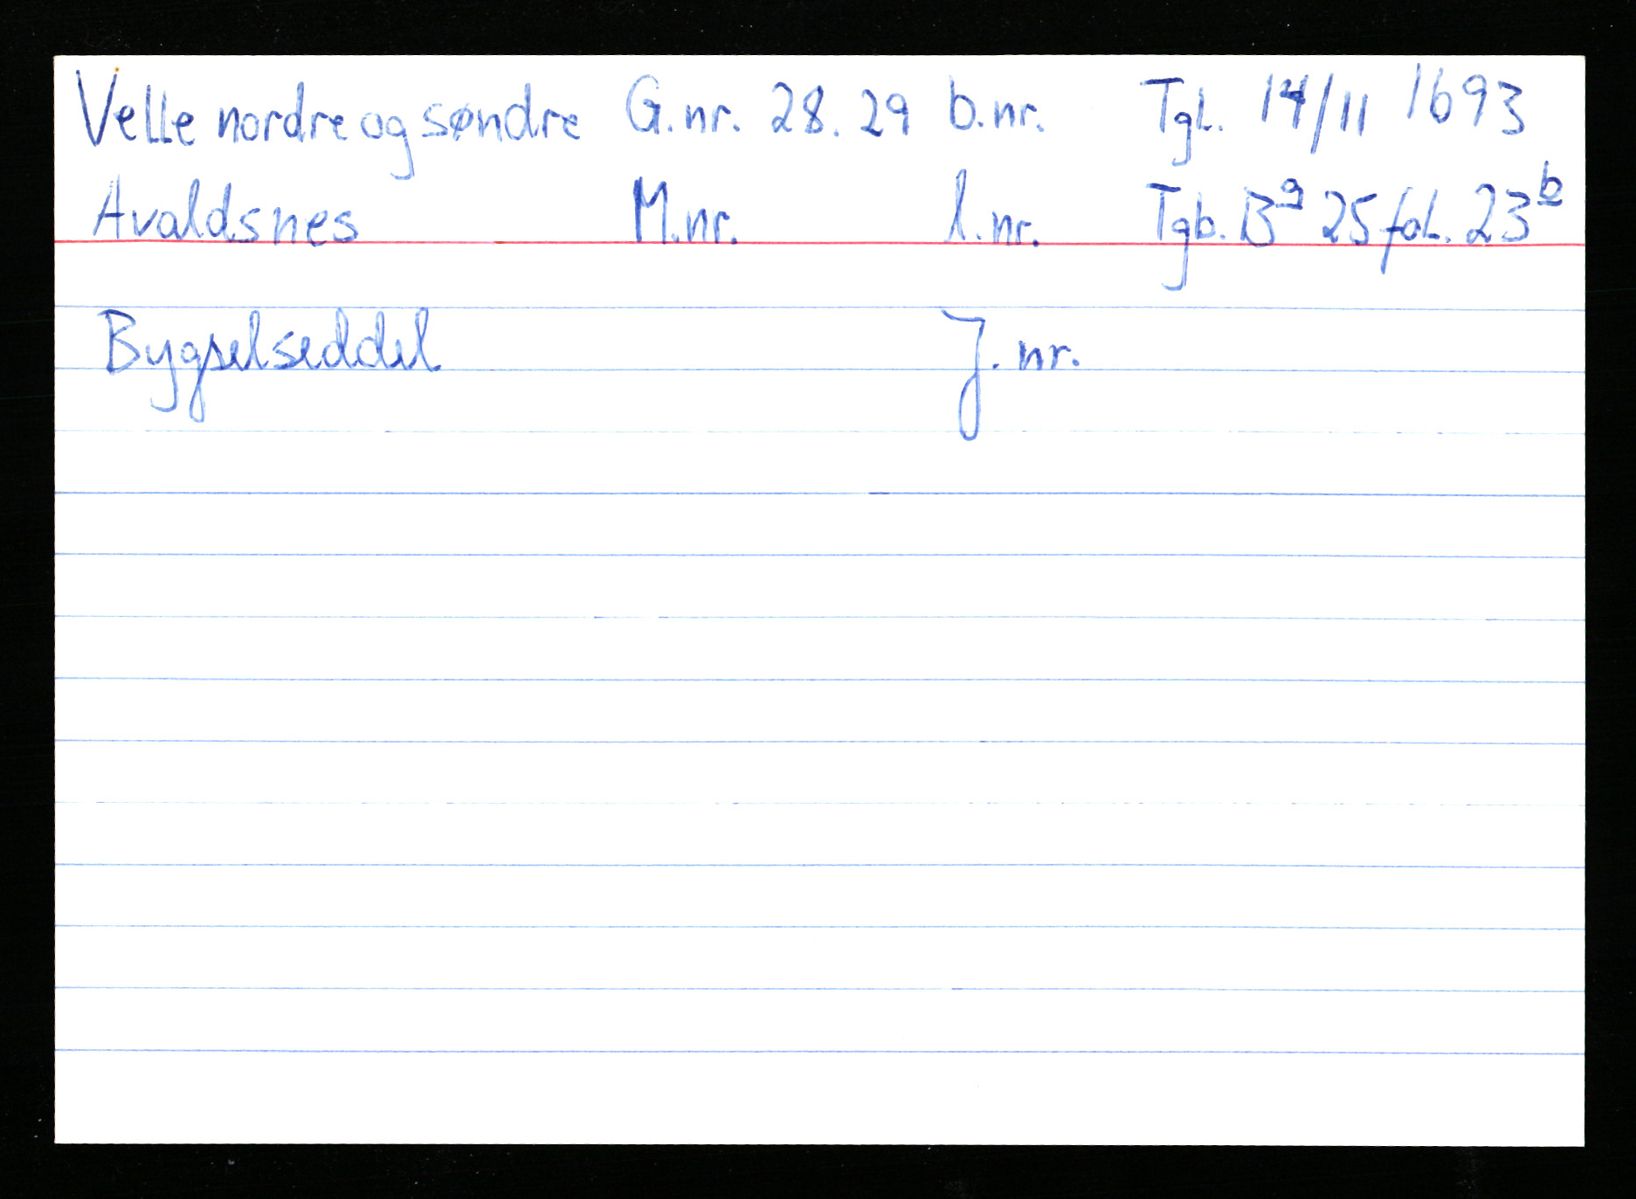 Velle nordre og søndre G.nr. 28. 29 b.nr. Tgl. 14/11 1693
Avaldsnes M.nr. l.nr. Tgb. Bª 25 fol. 23b
Bygselseddel J. nr.